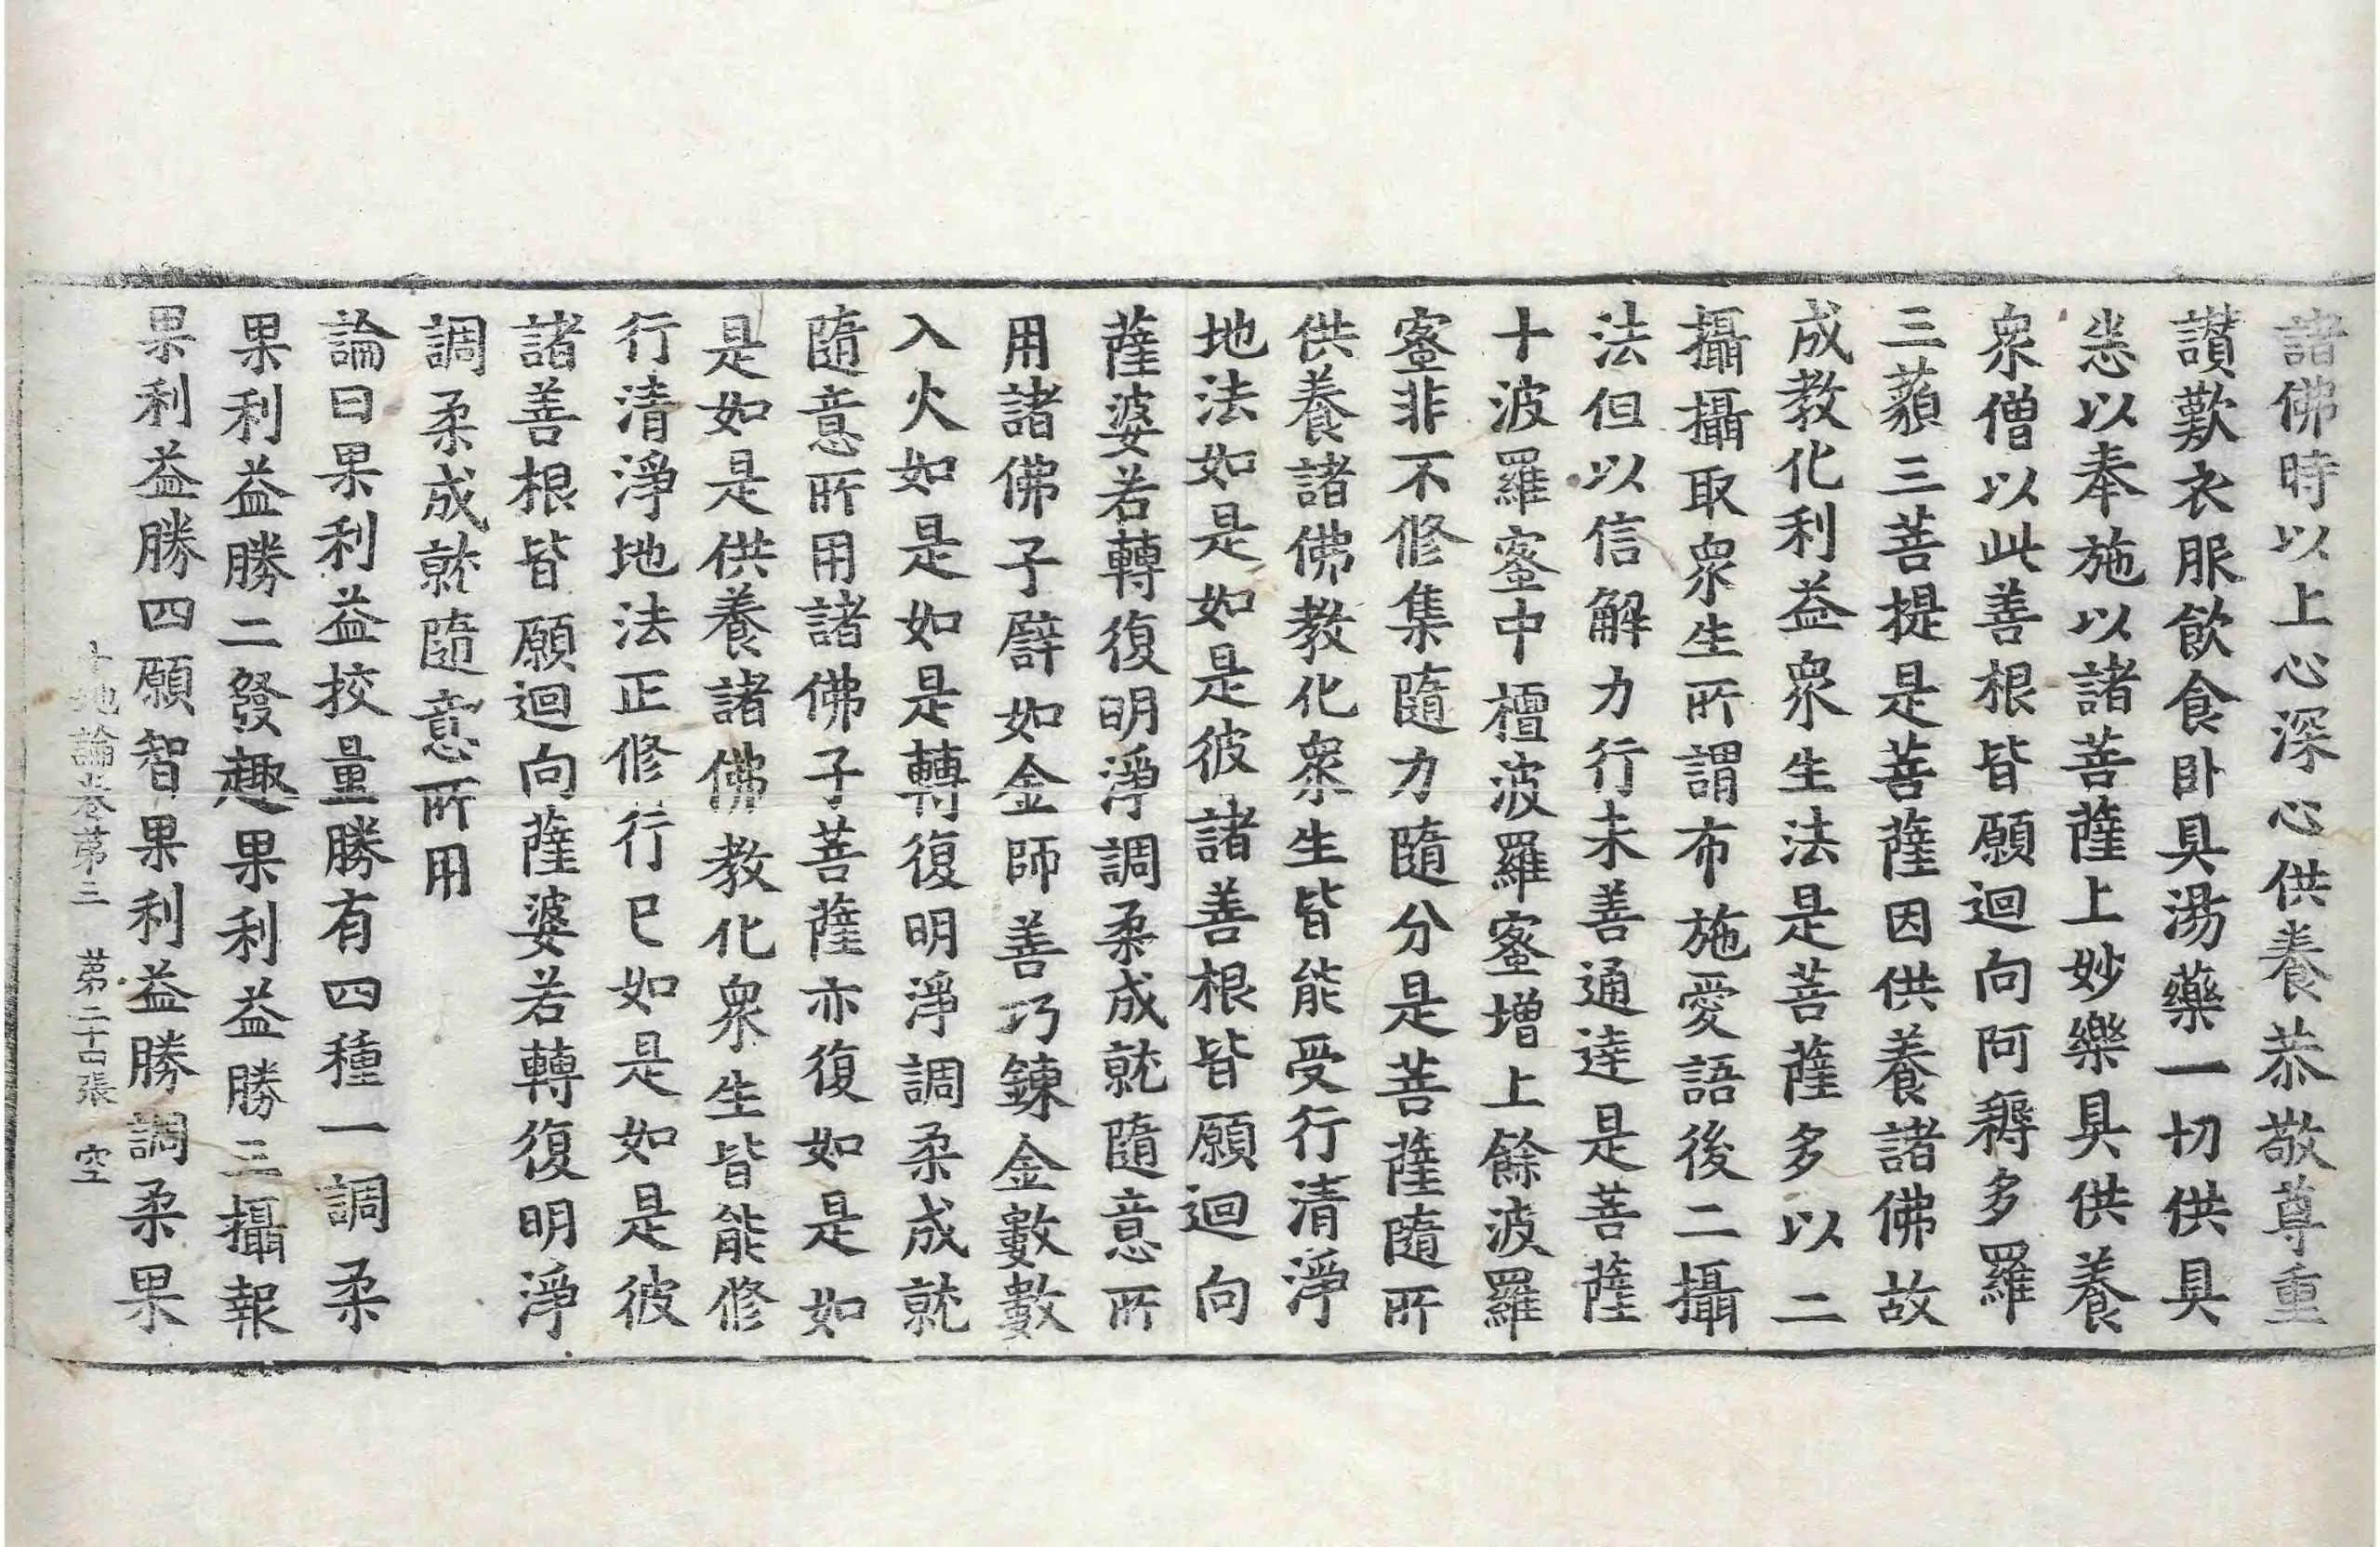 諸佛時以上心深心供養恭敬尊重
讃歎衣服飲食卧具湯藥一切供具
悉以奉施以諸菩薩上妙樂具供養
衆僧以此善根皆願迴向阿耨多羅
三藐三菩提是菩薩因供養諸佛故
成教化利益衆生法是菩薩多以二
攝攝取衆生所謂布施愛語後二攝
法但以信解力行未善通達是菩薩
十波羅蜜中檀波羅蜜增上餘波羅
蜜非不修集隨力隨分是菩薩隨所
供養諸佛教化衆生皆能受行清淨
地法如是如是彼諸善根皆願迴向
薩婆若轉復明淨調柔成就隨意所
用諸佛子譬如金師善巧鍊金數數
入火如是如是轉復明淨調柔成就
隨意所用諸佛子菩薩亦復如是如
是如是供養諸佛教化衆生皆能修
行清淨地法正修行已如是如是彼
諸善根皆願迴向薩婆若轉復明淨
調柔成就隨意所用
論曰果利益挍量勝有四種一調柔
果利益勝二發趣果利益勝三攝報
果利益勝四願智果利益勝調柔果
十地論卷第三　第二十四張　空